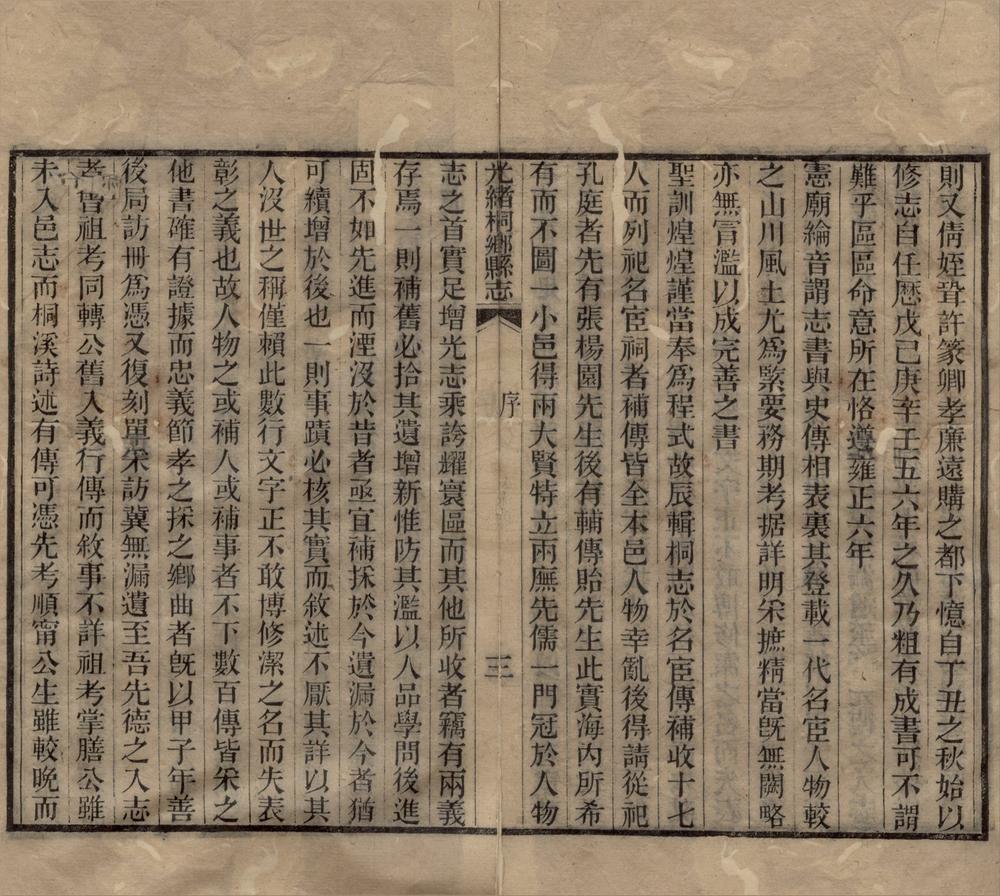 則又倩姪聓許篆卿孝廉遠購之都下憶自丁丑之秋始以
修志自任歷戊己庚辛壬五六年之久乃粗有成書可不謂
難乎區區命意所在恪遵雍正六年
憲廟綸音謂志書與史傳相表裏其登載一代名宦人物較
之山川風土尤爲緊要務期考据詳明采摭精當旣無闕略
亦無冒濫以成完善之書
聖訓煌煌謹當奉爲程式故辰輯桐志於名宦傳補收十七
人而列祀名宦祠者補傳皆全本邑人物幸亂後得請從祀
孔庭者先有張楊園先生後有輔傳貽先生此實海內所希
有而不圖一小邑得兩大賢特立兩廡先儒一門冠於人物
光緒桐鄉縣志
序
三
志之首實足增光志乘誇耀寰區而其他所收者竊有兩義
存焉一則補舊必拾其遺增新惟防其濫以人品學問後進
固不如先進而湮沒於昔者亟宜補採於今遺漏於今者猶
可續增於後也一則事蹟必核其實而敘述不厭其詳以其
人沒世之稱僅賴此數行文字正不敢博修潔之名而失表
彰之義也故人物之或補人或補事者不下數百傳皆采之
他書確有證據而忠義節孝之採之鄉曲者旣以甲子年善
後局訪冊爲憑又復刻單采訪冀無漏遺至吾先德之入志
者曾祖考同轉公舊入義行傳而敘事不詳祖考掌膳公雖
未入邑志而桐溪詩述有傳可憑先考順甯公生雖較晚而